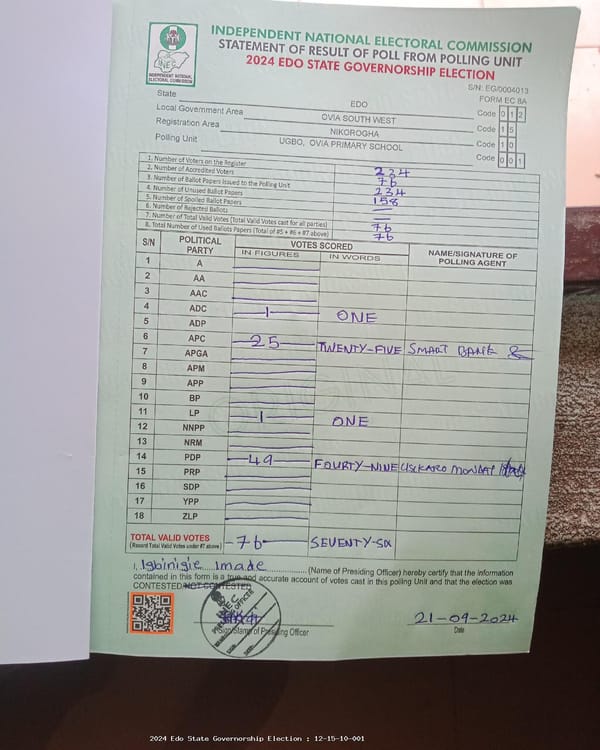 INDEPENDENT NATIONAL ELECTORAL COMMISSION
STATEMENT OF RESULT OF POLL FROM POLLING UNIT
2024 EDO STATE GOVERNORSHIP ELECTION
INEC
INDEPENDENT NATIONAL ELECTORAL COMMISSION
S/N: EG/0004013
FORM EC 8A
State EDO Code 0 1 2
Local Government Area OVIA SOUTH WEST Code 1 5
Registration Area NIKOROGHA Code 1 0
Polling Unit UGBO, OVIA PRIMARY SCHOOL Code 0 0 1
1. Number of Voters on the Register 234
2. Number of Accredited Voters 76
3. Number of Ballot Papers Issued to the Polling Unit 234
4. Number of Unused Ballot Papers 158
5. Number of Spoiled Ballot Papers —
6. Number of Rejected Ballots —
7. Number of Total Valid Votes (Total Valid Votes cast for all parties) 76
8. Total Number of Used Ballots Papers (Total of #5 + #6 + #7 above) 76
S/N POLITICAL PARTY VOTES SCORED NAME/SIGNATURE OF POLLING AGENT
IN FIGURES IN WORDS
1 A
2 AA
3 AAC
4 ADC 1 ONE
5 ADP
6 APC 25 TWENTY-FIVE SMART
7 APGA
8 APM
9 APP
10 BP
11 LP 1 ONE
12 NNPP
13 NRM
14 PDP 49 FOURTY-NINE MONDAY
15 PRP
16 SDP
17 YPP
18 ZLP
TOTAL VALID VOTES -76- SEVENTY-SIX
(Record Total Valid Votes under #7 above)
I, Igbinigie Imade (Name of Presiding Officer) hereby certify that the information
contained in this form is a true and accurate account of votes cast in this polling Unit and that the election was
CONTESTED/NOT CONTESTED
INEC
Sign/Stamp of Presiding Officer
21-09-2024
Date
2024 Edo State Governorship Election : 12-15-10-001